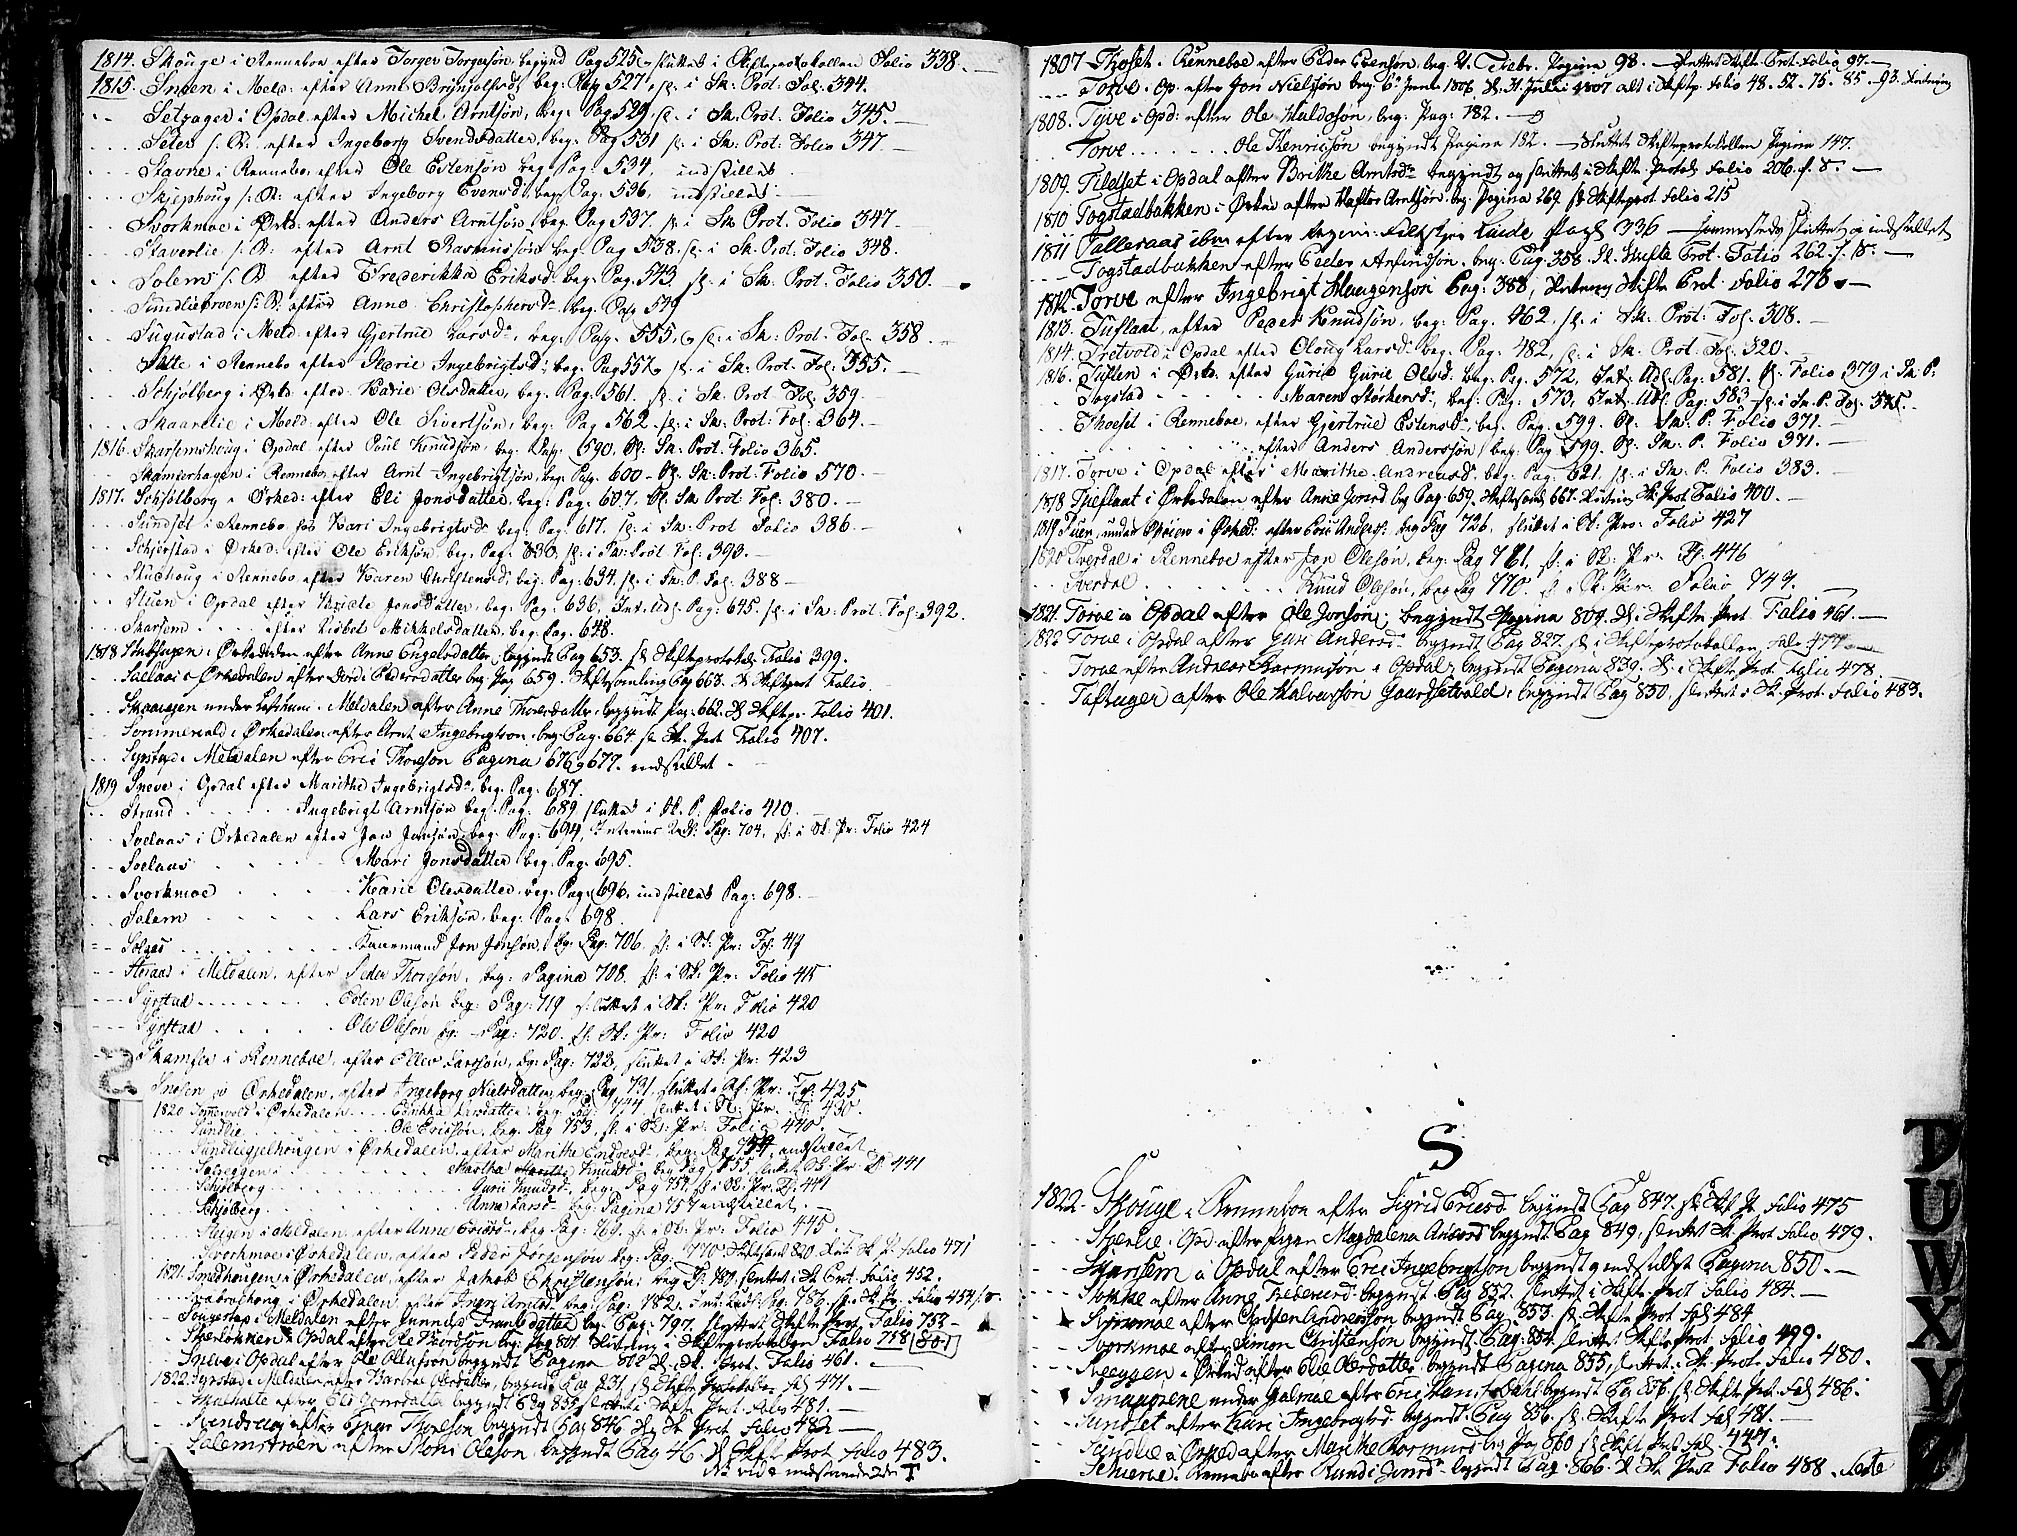 1814. Skouge i Rennebo efter Jorger Jorgersøn, begynd Pag 525, sluttet i Skifteprotokollen Folio 338.
1815. Snoen i Meld: efter Anne Brynjolfsd: beg: Pag 527, sl: i Sk: Prot: Fol: 344.
Setrager i Opdal efter Michel Arntsøn, beg: Pag 529, sl: i Sk: Prot: Folio 345.
Seter s: R: efter Ingeborg Svendsdatter, beg: Pag 531 sl: i Sk: Prot: Folio 347.
Stavne i Rennebo, efter Ole Estensøn beg: Pag: 534, indstillet
Skjephoug s: R: efter Ingeborg Evensd: beg: Pag: 536, indstillet
Svorkmoe i Ørkd: efter Anders Arntsøn, beg: Pag 537. sl: i Sk: Prot: Folio 347.
Staverlie s: R: efter Arnt Rasmussøn beg: Pag 538. sl: i Sk: Prot: Folio 348.
Solem s: R: efter Frederikka Eriksd: beg: Pag: 543. sl: i Sk: Prot: Folio 350.
Sundliebroen s: R: efter Anne Christophersd: beg: Pag 549
Sugustad i Meld: efter Gjertrue Larsd: beg: Pag: 555, sl: i Sk: Prot: Fol: 358
Sætte i Rennebo efter Marie Ingebrigtsd: beg: Pag 557, sl: i Sk: Prot: Fol: 355.
Schjølberg i Ørkd: efter Karie Olsdatter, beg: Pag: 561. sl: i Sk: Prot: Fol: 359
Skaarelie i Meld: efter Ole Sivertsøn, beg: Pag 562 sl: i Sk: Prot: Fol: 364.
1816. Skarsemshoug i Opdal, efter Poul Knudsøn, beg: Pag: 590. Sl: Sk: Prot: Folio 365.
Skamferhagen i Rennebo efter Arnt Ingebrigtsøn, beg: Pag: 600. Sl: Sk: Prot: Folio 570
1817. Schjølberg i Ørked: efter Eli Jonsdatter, beg: Pag: 607. Sl: Sk: Prot: Fol: 380.
Sundset i Rennebo for Kari Ingebrigtsd: beg: Pag: 617. sl: i Sk: Prot Folio 386.
Schjerstad i Ørked: efter Ole Eriksøn, beg: Pag: 630. sl: i Sk: Prot Fol: 390.
Stuehoug i Rennebo efter Karen Christensd: beg: Pag: 634. sl: i Sk: P. Fol: 388
Stuen i Opdal efter Jonsdatter, beg: Pag: 636, Int: Udl: Pag: 645. sl: i Sk: Prot: Fol: 392.
Skarsem efter Lisbet Mikkelsdatter, beg: Pag: 648.
1818 Stubhagen i Ørkedalen efter Anne Engelsdatter, begyndt Pag 653. sl: Skifteprotokol Folio 399.
i Ørkedalen efter Pedersdatter beg: Pag 659. Skiftesamling Pag 663. Sl: Skifteprot Folio
Skaaragen under i Meldalen efter Anne Thoresdatter, begyndt Pag: 662. Sl: Skiftepr: Folio 401.
Sommervold i Ørkedalen efter Arnt Ingebrigtson, beg: Pag: 664. sl: Sk: Prot Folio 407.
Syrstad i Meldalen efter Eric Thoreson Pagina 676 og 677. indstillet
1819 Sneve i Opdal efter Marithe Ingebrigtsd: beg: Pag: 687.
Strand Ingebrigt Arntsøn beg: Pag: 689 sluttet i Sk: P: Folio 410.
Soelaas i Ørkedalen efter Jon Jonsøn, beg: Pag: 694, Interims Udl: Pag: 704, sl: i Sk: Pr: Folio 424
Soelaas Mari Jonsdatter beg: Pag: 695.
Svorkmoe Karie Olesdatter, beg: Pag: 696, indstillet Pag: 698.
Solem Lars Eriksøn, beg: Pag: 698.
Solaas Jon Jonsøn, bg: Pag: 706. sl: i Sk: Pr: Fol: 419
i Meldalen, efter Peder Thoresøn, beg: Pagina 708. sl: i Sk: Pr: Folio 415
Syrstad Eden Olsøn beg: Pag: 719 sluttet i Sk: Pr: Folio 420
Syrstad Ole Olsøn bg: Pag: 720. sl: Sk: Pr: Folio 420
Skamfer i Renneboe, efter Ellev Larssøn, bg: Pag: 722, sluttet i Sk: Pr: 423
Snosen i Ørkedalen, efter Ingeborg Nielsdatter, beg: Pag 731. sluttet i Sk: Pr: Fol: 425
1820 Sommervold i Ørkedalen Larsdatter beg: Pag: 744 sluttet i Sk: Pr: Fol: 430.
Sundlie Ole Ericsøn, beg: Pag 753. sl: i Sk: Pr: Folio 440
Sundliegjelhougen i Ørkedalen, efter Marithe Endresd: beg: Pag 754, indstillet
Solreggen Martha Knudsd: beg Pag 755 sluttet Sk: Pr: Fol: 441
Schjølberg Guru Knudsd. beg: Pag 757. sl: i Sk: Pr. Fol: 441
Schjølberg Anne Larsd: beg: Pagina 757 indstillet
i Meldalen, efter Anne Ericsd: beg Pag: 769. sl: i Sk: Pr: Folio 445
Svorkmoe i Ørkedalen, efter Peder Jørgensøn beg: Pag: 770 Skiftesaml 820. Folio 471
1821. Smedhougen i Ørkedalen, efter Jakob Christensøn: beg Pag: 780. sluttet i Sk: Prot: Folio 452.
i Ørkedalen efter Ingri Arntsd: beg: Pag: 782. Int: Udl: Pag: 786 sl: Sk: Pr: Folio 454
i Meldalen efter Gunnild Frantsdatter beg: Pag: 797, sluttet Skifte Prot: Folio 753
i Opdal efter Ole Pag 801. Skifteprotokollen Folio 718 [801]
Sneve i Opdal efter Ole Ollufson begyndt Pagina 802 Sl: Sk: Prot: Folio 461.
1822. Syrstad i Meldalen efter Barbra Olesdatter, begyndt Pag 831 sl: Skifte Protokollen Fol 471.
efter Eli Jonsdatter begyndt Pag 835 sluttet i Skifte Prot: Folio 481.
efter Thoreson begyndt Pag 846 Sl: Sk: Prot Folio 482
Salemstroen efter Oleson, begyndt Pag 46. Sl: Skifte Prot Folio 483.
NB vide indestaaende T
1807 Thoset. Renneboe efter Peder Estensøn. beg: Pagina 98. Skifte Prot. Folio 97.
Torve. Op: efter Jon Nielssøn beg: 6 Juni 1806 Sl: 31 Julii 1807 alt i Skiftp: Folio 48. 52. 75. 85. 93.
1808. Tyve i Opd: efter Ole Haldosøn, beg: Pag: 182.
Torve Ole Henricsøn begyndt Pagina 182. Sluttet Skifteprotokollen Pagina 147.
1809. i Opdal efter Brithe Arntsdr begyndt og sluttet i Skifte Protok Folio 206. f. S.
1810 Togstadbakken i Ørkd: efter Arntsøn. beg: Pagina 269. Sl: Skifteprot Folio 215
1811 Talleraas ibm efter Pagi 336 sluttet og indstillet
Togstadbakken efter Peder Arfindsøn. beg. Pag: 358. Sl. Skifte Prot. Folio 262.
1812. Torve efter Ingebrigt Haagenson Pag: 388, Skifte Prot Folio 273.
1813. Tuflaat, efter Peder Knudsøn, beg: Pag. 462, sl: i Sk: Prot: Fol. 308.
1814. Tretvold i Opdal efter Oloug Larsd: beg: Pag: 482, sl: i Sk. Prot: Fol: 320.
1816. Tuften i Ørk: efter Gurie Gurie Olesd: beg: Pag. 572, Int: Udl: Pag: 581. Sl: Folio 379 i Sk: P:
Togstad Maren Størkersd: beg: Pag: 573, Int: Udl: Pag: 583 sl: i Sk: P: Fol: 375.
Thoeset i Renneboe, efter Gjertrue Estensd: beg: Pag: 599. Sl: Sk: P: Folio 371.
efter Anders Anderssøn, beg: Pag 599. Sl: Sk: P. Folio 371.
1817. Torve i Opdal efter Marithe Andreasd: beg: Pag: 621, sl: i Sk: P. Folio 383.
1818 Tieflaat i Ørkedalen efter Anne Jonsd beg Pag 659. Skiftesaml 667. Sk: Prot Folio 400.
1819 Tuen, under i Ørked: efter Anders: beg Pag 726, sluttet i Sk: Pro: Folio 427
1820 Tverdal i Renneboe efter Jon Olesøn, beg: Pag 761, sl: i Sk: Pr: Fol: 446
Tverdal Knud Olesøn, beg Pag 770. sl: i Sk: Pr: Folio 749.
1821. Torve i Opdal efter Ole Jonsøn, begyndt Pagina 804. Sl: Skifte Prot Folio 461.
1822 Torve i Opdal efter Guri Andersd: begyndt Pag 827. sl: i Skifteprotokollen, Folio 474
Torve efter Andreas Rasmussøn i Opdal, begyndt Pagina 839. Sl: i Skifte Prot Folio 478.
efter Ole Halvorssøn begyndt Pag 850, sluttet i Sk: Prot: Folio 483.
S
1822. Skouge i Renneboe efter Sigrid Ericsd begyndt Pag 847. sl: Skift Pr Folio 475
i Opd: efter Magdalena begyndt Pag 849, sluttet Sk: Prot Folio 479.
Skarsem i Opdal efter Eric Ingebrigtson begyndt og indstillet Pagina 850.
Stokke efter Anne Pedersd: begyndt Pag 852. sluttet i Skifte Prot i Folio 484.
Svorkmoe efter Christen Anderssøn begyndt Pag: 853. sl: Skifte Prot Fol 484.
Svorkmoe efter Simon Christenson begyndt Pag: 854. sluttet Skifte Prot: Folio 499.
i Ørked efter Elie Olesdatter begyndt Pagina 855, sluttet i Sk: Prot: Folio 480.
under efter Eric begyndt Pag 856. sl: Skift Prot Fol 486.
Sundset efter Kari Ingebrigtsd: begyndt Pag 856. sl: Skifte Prot Fol 481.
Sundlie i Ørked efter Marithe Rasmusd beg Pag 860 sl: Skift Prot Fol: 447.
i Rennebo efter Jonsdr begyndt Pag: 866. Sl: Sk: Prot Folio 488.
T
U
W
X
Y
Z
S